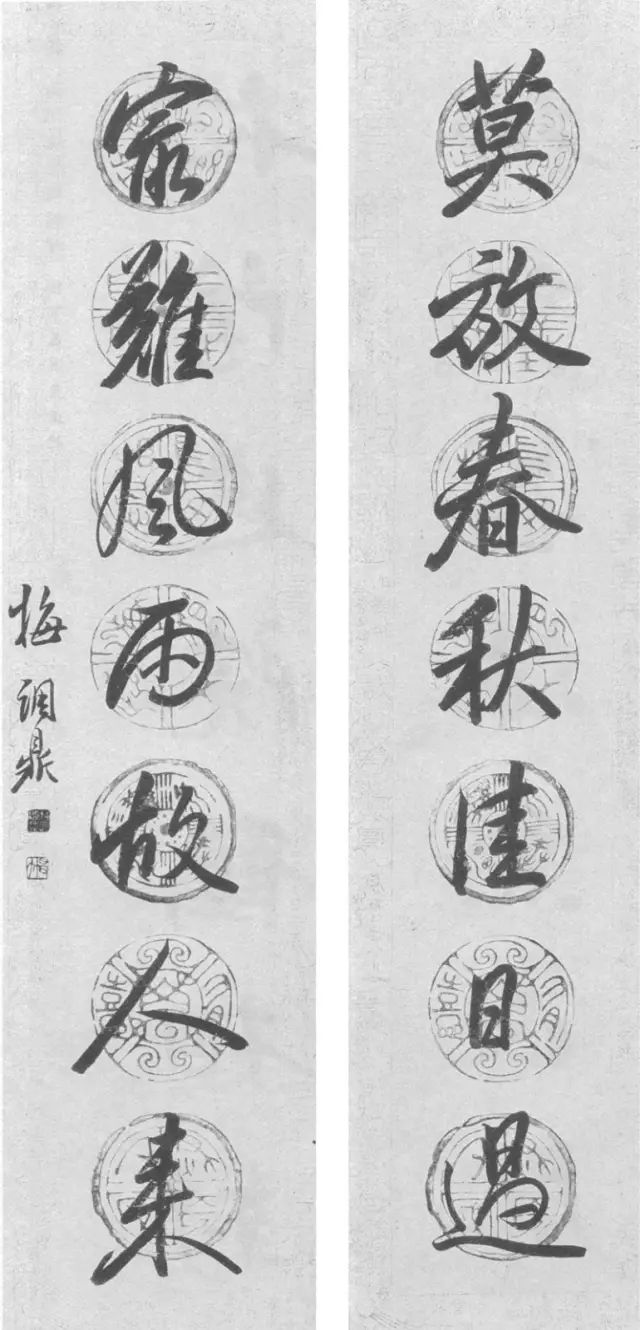 莫放春秋佳日過
最難風雨故人来
梅調鼎